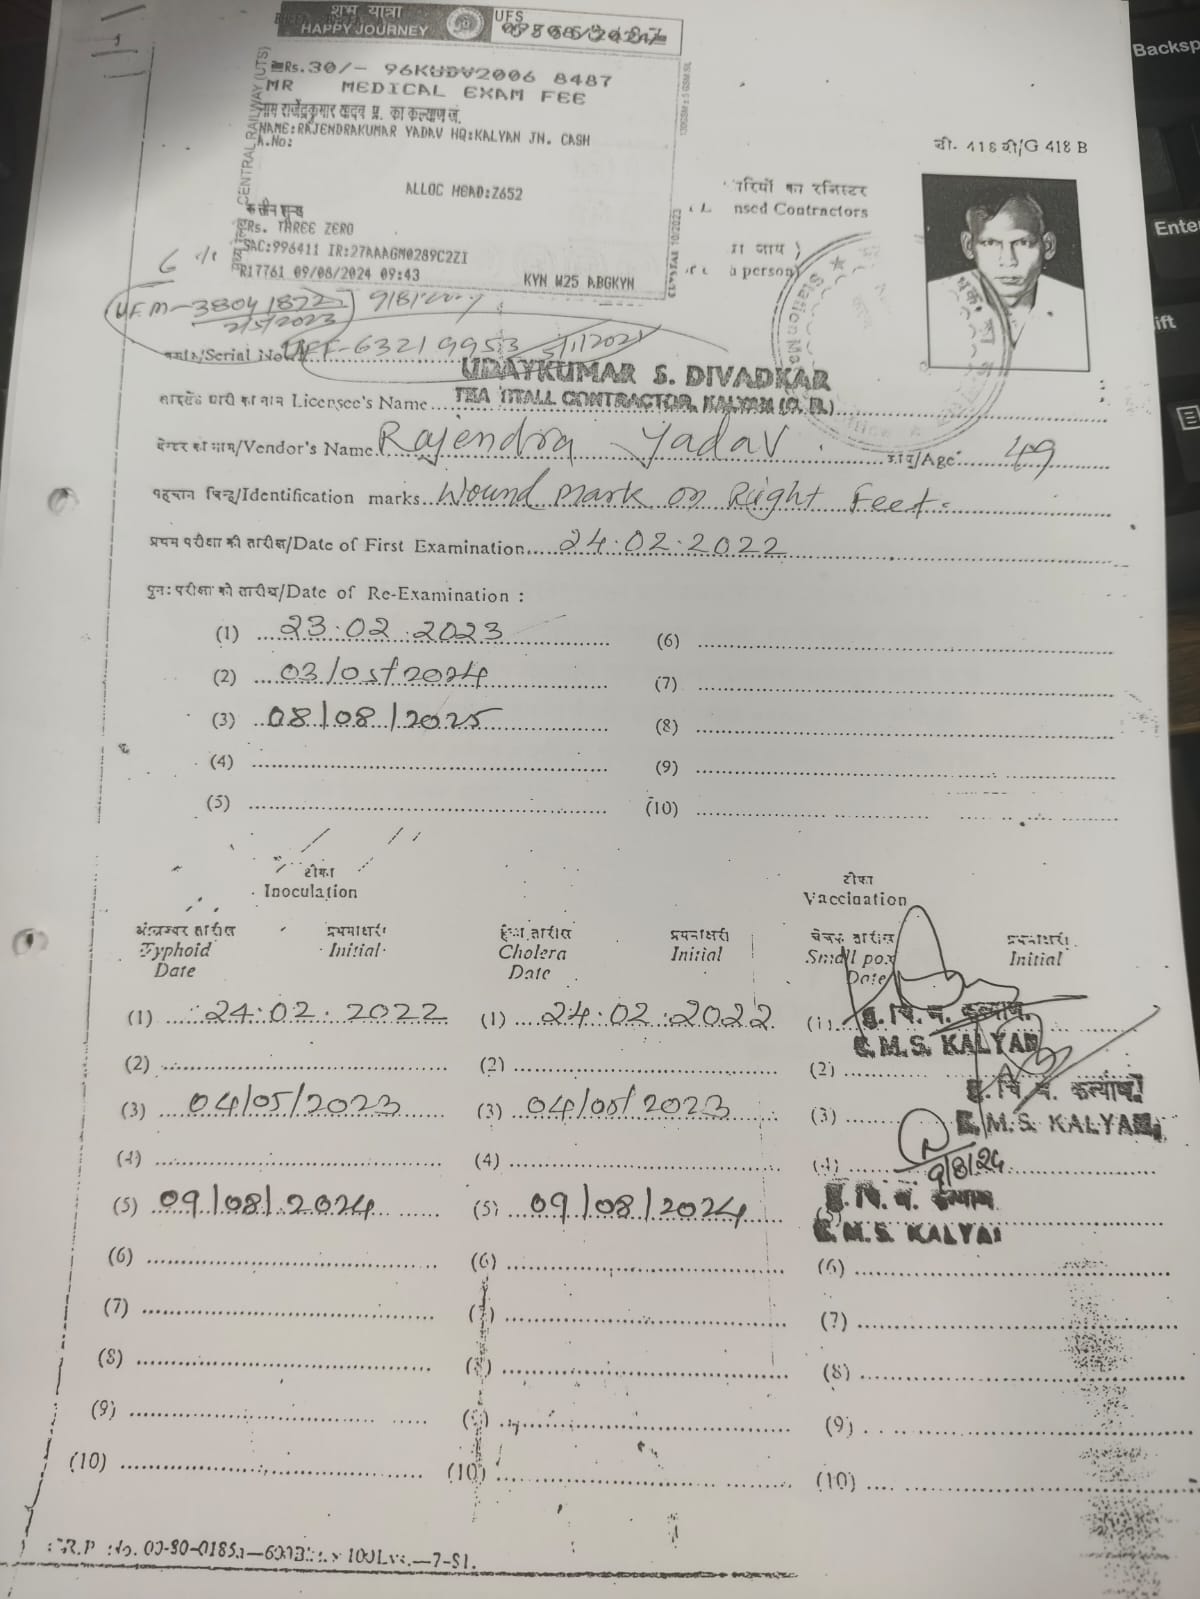 शुभ यात्रा
HAPPY JOURNEY
UFS
Rs.30/- 96KUDV2006 8487
MR MEDICAL EXAM FEE
नाम राजेंद्रकुमार यादव प्र. का कल्याण जं.
NAME:RAJENDRAKUMAR YADAV HQ:KALYAN JN. CASH
A.No:
ALLOC HEAD:Z652
Rs. THREE ZERO
SAC:996411 IR:27AAAGM0289C2ZI
R17761 09/08/2024 09:43
KYN W25 ABGKYN
CENTRAL RAILWAY (UTS)
बी. 418 बी/G 418 B
रियों का रजिस्टर
nsed Contractors
जाय )
a person)
Station Ma
9/8/2024
2/5/2023
/Serial No
UDAYKUMAR S. DIVADKAR
Licensee's Name TEA STALL CONTRACTOR, KALYAN (C. R.)
/Vendor's Name Rajendra Yadav /Age 49
पहचान चिन्ह/Identification marks Wound mark on Right Feet.
प्रथम परीक्षा की तारीख/Date of First Examination 24.02.2022
पुनः परीक्षा की तारीख/Date of Re-Examination :
(1) 23.02.2023 (6)
(2) 03/05/2024 (7)
(3) 08/08/2025 (8)
(4) (9)
(5) (10)
टीका
Inoculation
टीका
Vaccination
तारीख
Typhoid
Date
प्रथमाक्षरी
Initial
हैजा तारीख
Cholera
Date
प्रथमाक्षरी
Initial
चेचक तारीख
Small pox
Date
प्रथमाक्षरी
Initial
(1) 24.02.2022 (1) 24.02.2022 (1)
C.M.S. KALYAN
(2) (2) (2)
(3) 04/05/2023 (3) 04/05/2023 (3)
C.M.S. KALYAN
(4) (4) (4) 9/8/24
(5) 09/08/2024 (5) 09/08/2024
C.M.S. KALYAN
(6) (6) (6)
(7) (7) (7)
(8) (8) (8)
(9) (9) (9)
(10) (10) (10)